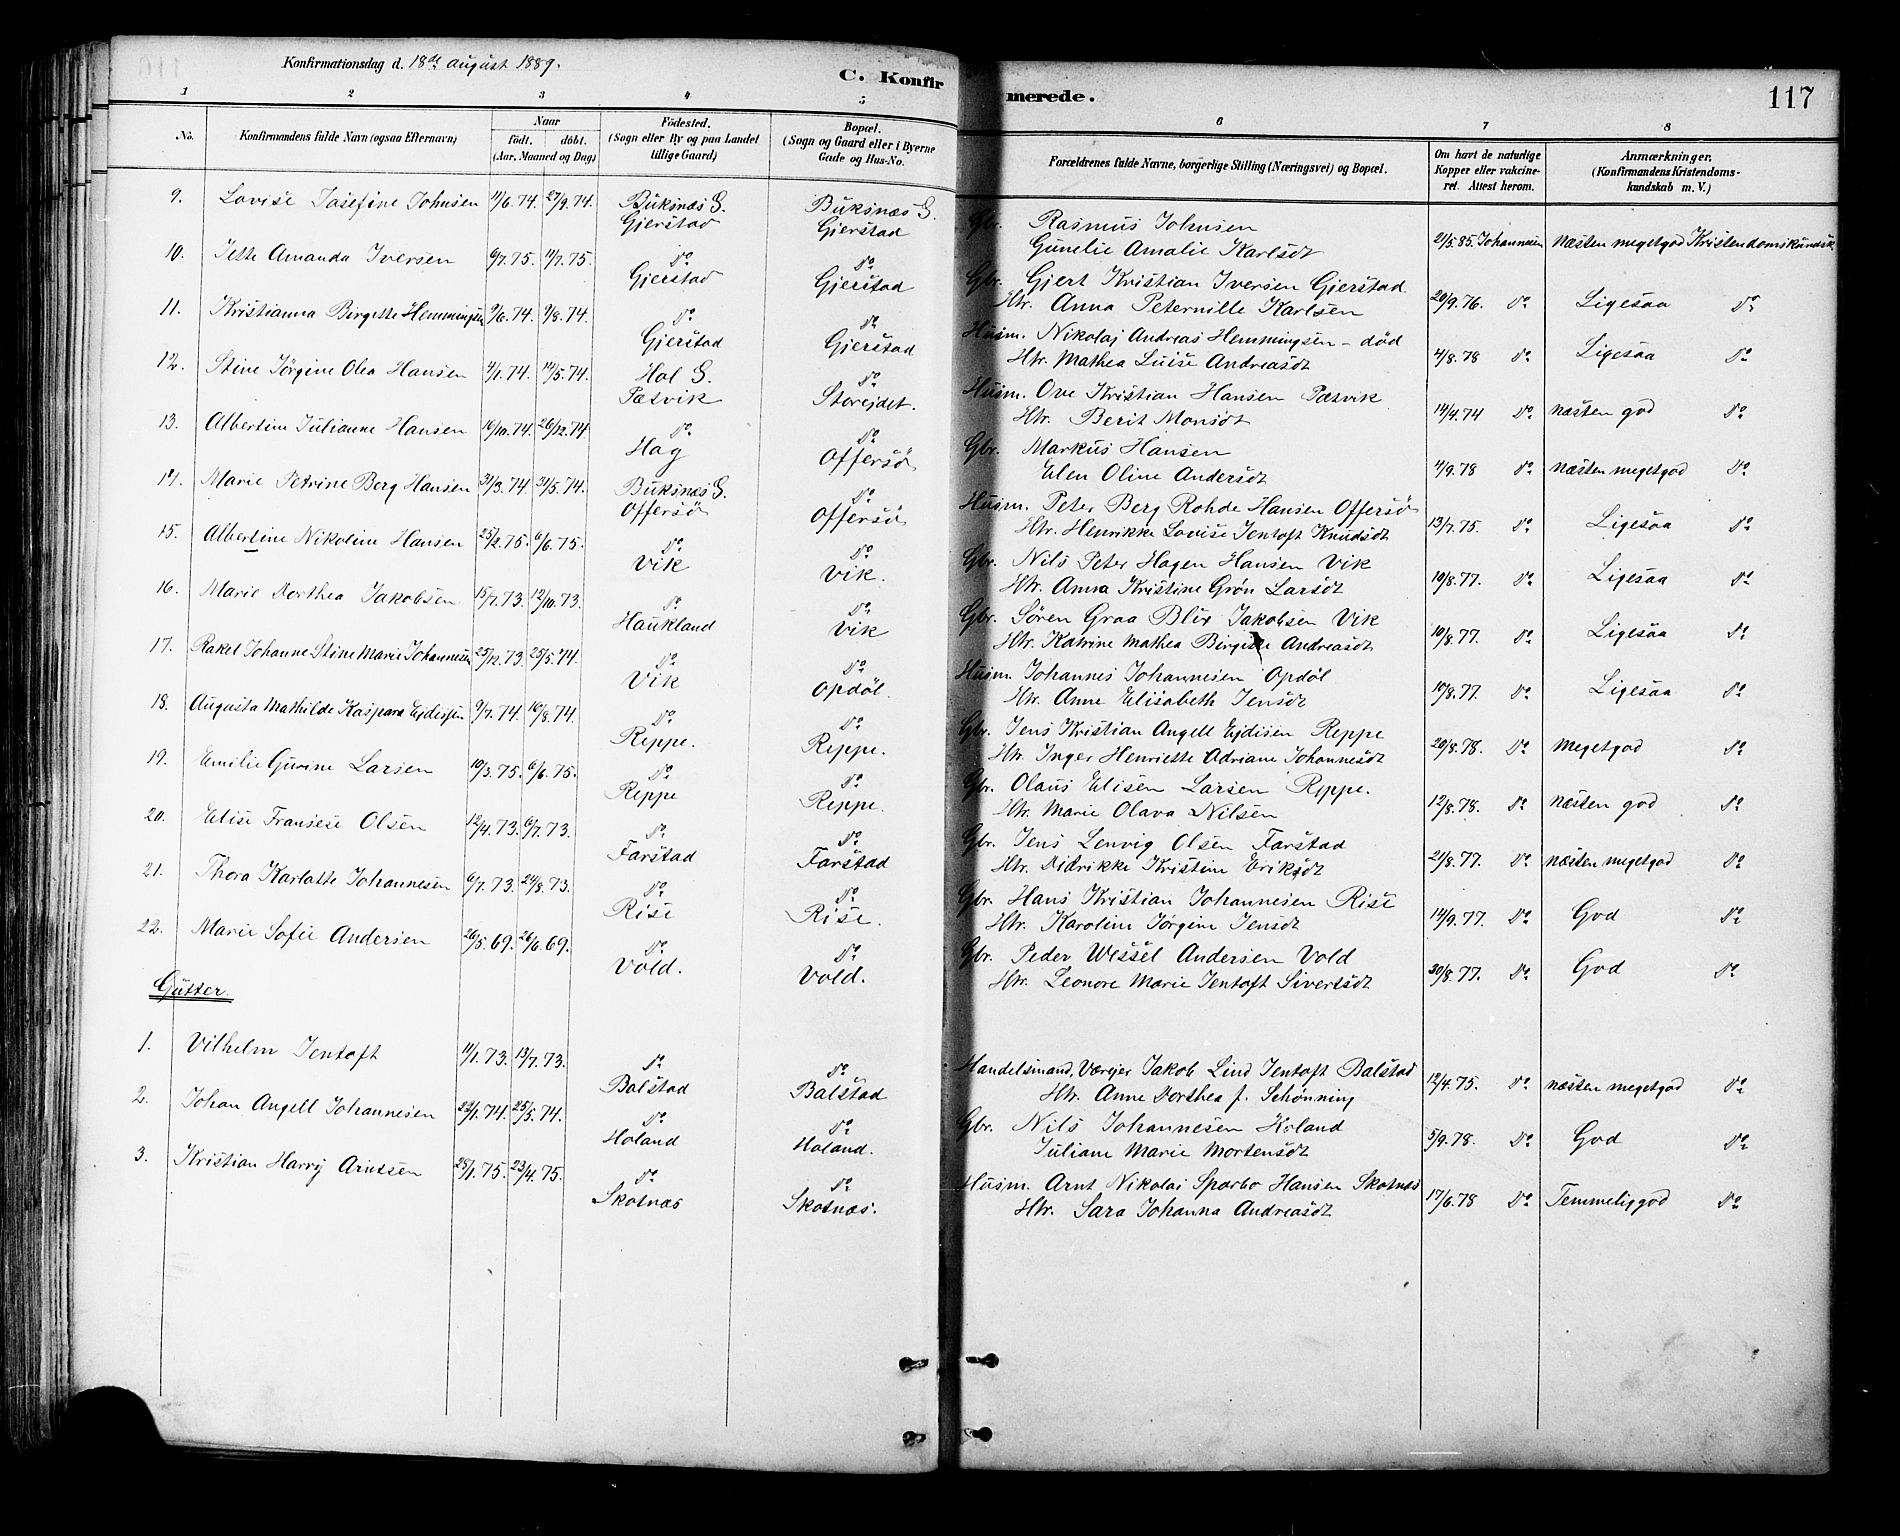 Konfirmationsdag d. 18de august 1889.
C. Konfir
merede.
117
1 2 3 4 5 6 7 8
No. Konfirmandens fulde Navn (ogsaa Efternavn) Naar födt. döbt. (Aar, Maaned og Dag) Födested. (Sogn eller By og paa Landet tillige Gaard) Bopæl. (Sogn og Gaard eller i Byerne Gade og Hus-No. Forældrenes fulde Navne, borgerlige Stilling (Næringsvei) og Bopæl. Om havt de naturlige Kopper eller vakcineret. Attest herom. Anmærkninger. (Konfirmandens Kristendomskundskab m. V.)
9. Lovise Josefine Johnsen 11/6.74. 27/9.74. Buksnæs S. Gjerstad Buksnæs S. Gjerstad Gbr. Rasmus Johnsen
Gunelie Amalie Karlsdt 21/5.85. Johannesen Næsten megetgod Kristendomskundsk
10. Jette Amanda Iversen 6/7.75. 11/7.75. Do Gjerstad Do Gjerstad Gbr. Gjert Kristian Iversen Gjerstad
Htr. Anna Peternille Karlsen 20/9.76. Do Ligesaa Do
11. Kristianna Birgitte Hemmingsen 9/6.74. 9/8.74. Do Gjerstad Do Gjerstad Husm. Nikolaj Andreas Hemmingsen - död
Htr. Mathea Luise Andreasdt 4/8.78 Do Ligesaa Do
12. Stine Jörgine Olea Hansen 4/1.74. 14/5.74. Hol S. Petvik Do Storejdet. Husm. Ove Kristian Hansen Petvik
Htr. Berit Monsdt 14/4.74 Do næsten god Do
13. Albertine Julianne Hansen 16/10.74. 26/12.74 Do Hag Do Offersö Gbr. Markus Hansen
Elen Oline Andersdt 4/9.78 Do næsten megetgod Do
14. Marie Petrine Berg Hansen 31/3.74. 31/5.74. Buksnæs S. Offersö Do Offersö Husm. Peter Berg Rohde Hansen Offersö
Htr. Henrikke Lovise Jentoft Knudsdt 13/7.75. Do Ligesaa Do
15. Albertine Nikoline Hansen 25/2.75. 6/6.75. Do Vik Do Vik. Gbr. Nils Peter Hagen Hansen Vik
Htr. Anna Kristine Grön Larsdt 10/8.77. Do Ligesaa Do
16. Marie Dorthea Jakobsen 15/7.73. 12/10.73. Do Haukland Do Vik Gbr. Sören Graa Blix Jakobsen Vik
Htr. Katrine Mathea Birgitte Andreasdt 10/8.77. Do Ligesaa Do
17. Rakel Johanne Stine Marie Johannesen 25/12.73. 25/5.74. Do Vik Do Opdöl. Husm. Johannes Johannesen Opdöl
Htr. Anne Elisabeth Jensdt 10/8.77. Do Ligesaa Do
18. Augusta Mathilde Kaspara Ejdissen 9/7.74. 16/8.74. Do Reppe. Do Reppe. Gbr. Jens Kristian Angell Ejdisen Reppe
Htr. Inger Henriette Adriane Johannesdt 20/8.78. Do megetgod Do
19. Emilie Gurine Larsen 10/3.75. 6/6.75. Do Reppe Do Reppe. Gbr. Olaus Elisen Larsen Reppe.
Htr. Marie Olava Nilsen 12/8.78. Do næsten god Do
20. Elise Fransese Olsen 12/4.73. 6/7.73. Do Farstad Do Farstad Gbr. Jens Lenvig Olsen Farstad
Htr. Didrikke Kristine Eriksdt 21/8.77. Do næsten megetgod Do
21. Thora Karlotte Johannesen 6/7.73. 24/8.73. Do Rise Do Rise. Gbr. Hans Kristian Johannesen Rise
Htr. Karoline Jörgine Jensdt 14/9.77. Do God Do
22. Marie Sofie Andersen 26/5.69. 26/6.69. Do Vold. Do Vold. Gbr. Peder Wessel Andersen Vold
Htr. Leonore Marie Jentoft Sivertsdt 30/8.77. Do God Do
Gutter.
1. Vilhelm Jentoft 11/1.73. 13/7.73. Do Balstad Do Balstad Handelsmand, Værejer Jakob Lind Jentoft Balstad
Htr. Anne Dorthea f. Schönning 12/4.75. Do næsten megetgod Do
2. Johan Angell Johannesen 22/1.74. 25/5.74. Do Holand Do Holand. Gbr. Nils Johannesen Holand
Juliane Marie Mortensdt 5/9.78. Do God Do
3. Kristian Harry Arntsen 28/1.75. 23/4.75. Do Skotnæs Do Skotnæs. Husm. Arnt Nikolai Sparbo Hansen Skotnæs
Htr. Sara Johanna Andreasdt 17/6.78 Do Temmeliggod Do